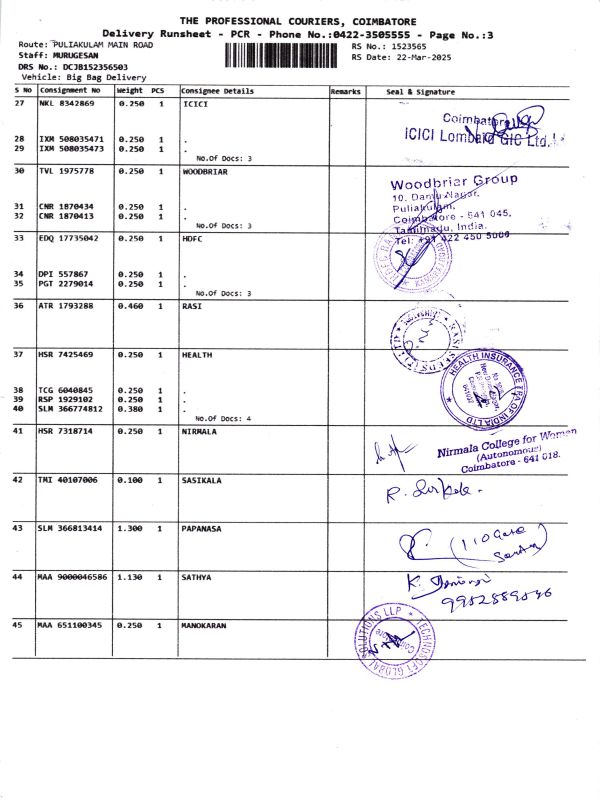 THE PROFESSIONAL COURIERS, COIMBATORE
Delivery Runsheet - PCR - Phone No.:0422-3505555 - Page No.:3
Route: PULIAKULAM MAIN ROAD RS No.: 1523565
Staff: MURUGESAN RS Date: 22-Mar-2025
DRS No.: DCJB152356503
Vehicle: Big Bag Delivery
S No Consignment No Weight PCS Consignee Details Remarks Seal & Signature
27 NKL 8342869 0.250 1 ICICI
Coimbatore
ICICI Lombard GIC Ltd.
28 IXM 508035471 0.250 1 .
29 IXM 508035473 0.250 1 .
No.Of Docs: 3
30 TVL 1975778 0.250 1 WOODBRIAR
Woodbriar Group
10, Damu Nagar,
Puliakulam,
Coimbatore - 641 045,
Tamilnadu, India.
Tel: +91 422 450 5000
31 CNR 1870434 0.250 1 .
32 CNR 1870413 0.250 1 .
No.Of Docs: 3
33 EDQ 17735042 0.250 1 HDFC
34 DPI 557867 0.250 1 .
35 PGT 2279014 0.250 1 .
No.Of Docs: 3
36 ATR 1793288 0.460 1 RASI
RASI SEEDS
37 HSR 7425469 0.250 1 HEALTH
HEALTH INSURANCE TPA OF INDIA LTD
38 TCG 6040845 0.250 1 .
39 RSP 1929102 0.250 1 .
40 SLM 366774812 0.380 1 .
No.Of Docs: 4
41 HSR 7318714 0.250 1 NIRMALA
Nirmala College for Women
(Autonomous)
Coimbatore - 641 018.
42 TMI 40107006 0.100 1 SASIKALA
43 SLM 366813414 1.300 1 PAPANASA
44 MAA 9000046586 1.130 1 SATHYA
45 MAA 651100345 0.250 1 MANOKARAN
TECHNOSOFT GLOBAL SOLUTIONS LLP